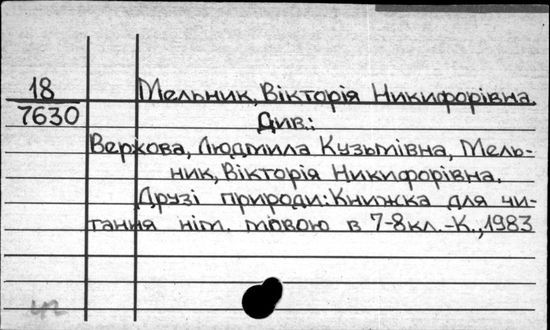 18 Мельник, Вікторія Никифорівна.
7630 Див.:
Верхова, Людмила Кузьмівна, Мель-
ник, Вікторія Никифорівна.
Друзі природи: Книжка для чи-
тання нім. мовою в 7-8 кл. -К., 1983